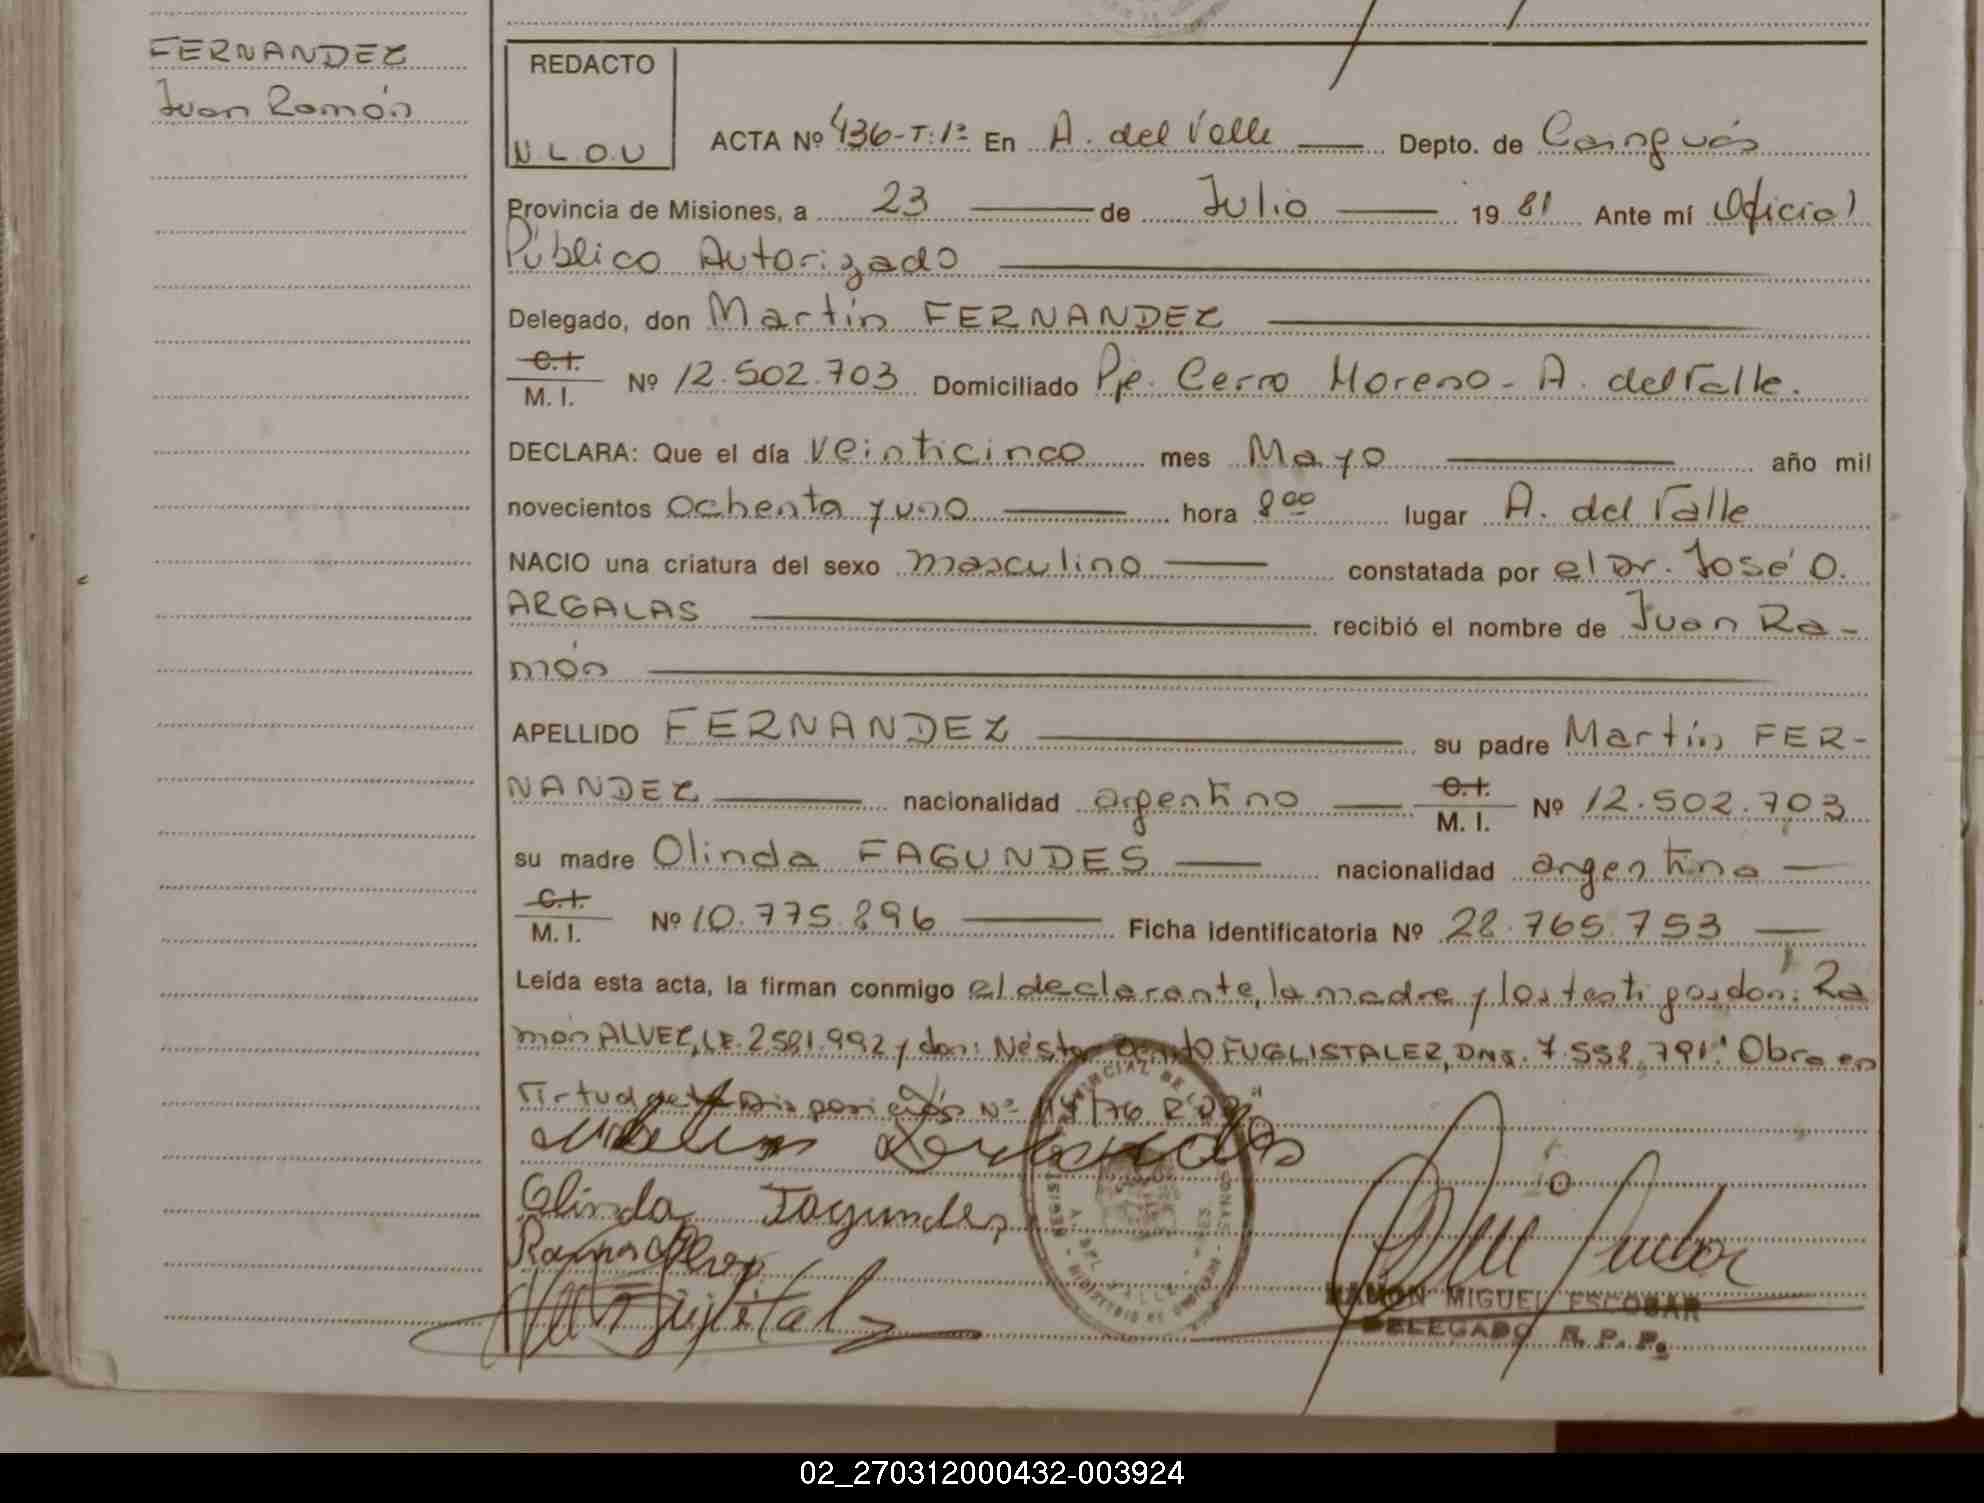 FERNANDEZ
Juan Ramón
REDACTO
N.L.O.U
ACTA Nº 436-T:1º En A. del Valle Depto. de Cainguás
Provincia de Misiones, a 23 de Julio 19 81 Ante mí Oficial
Público Autorizado
Delegado, don Martín FERNANDEZ
C.I.
M. I. Nº 12.502.703 Domiciliado Pje. Cerro Moreno - A. del Valle.
DECLARA: Que el día veinticinco mes Mayo año mil
novecientos ochenta y uno hora 8 00 lugar A. del Valle
NACIO una criatura del sexo masculino constatada por el Dr. José O.
ARGALAS recibió el nombre de Juan Ra-
món
APELLIDO FERNANDEZ su padre Martín FER-
NANDEZ nacionalidad argentino C.I. M. I. Nº 12.502.703
su madre Olinda FAGUNDES nacionalidad argentina
C.I.
M. I. Nº 10.775.896 Ficha identificatoria Nº 28.765.753
Leída esta acta, la firman conmigo el declarante, la madre y los testigos, don: Ra
món ALVEZ, LE. 2.581.992 y don: Néstor FUGLISTALER, DNI. 7.558.791." Obra en
Virtud de la Disposición Nº /76
Olinda Fagundes
RAMON MIGUEL ESCOBAR
DELEGADO R. P. P.
02_270312000432-003924